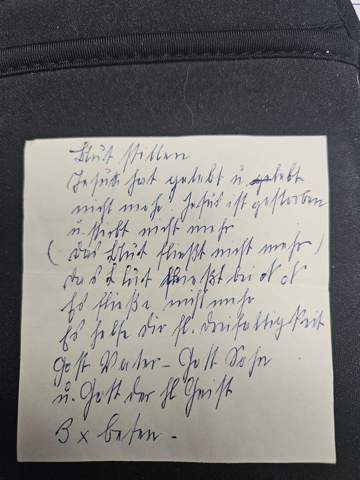 Blut stillen
Jesus hat gelebt u. lebt
nicht mehr. Jesus ist gestorben
u. stirbt nicht mehr
(das Blut fließt nicht mehr)
das Blut fließt bei
Es fließe nicht mehr
Es helfe dir hl. Dreifaltigkeit
Gott Vater - Gott Sohn
u. Gott der hl Geist
3 x beten.